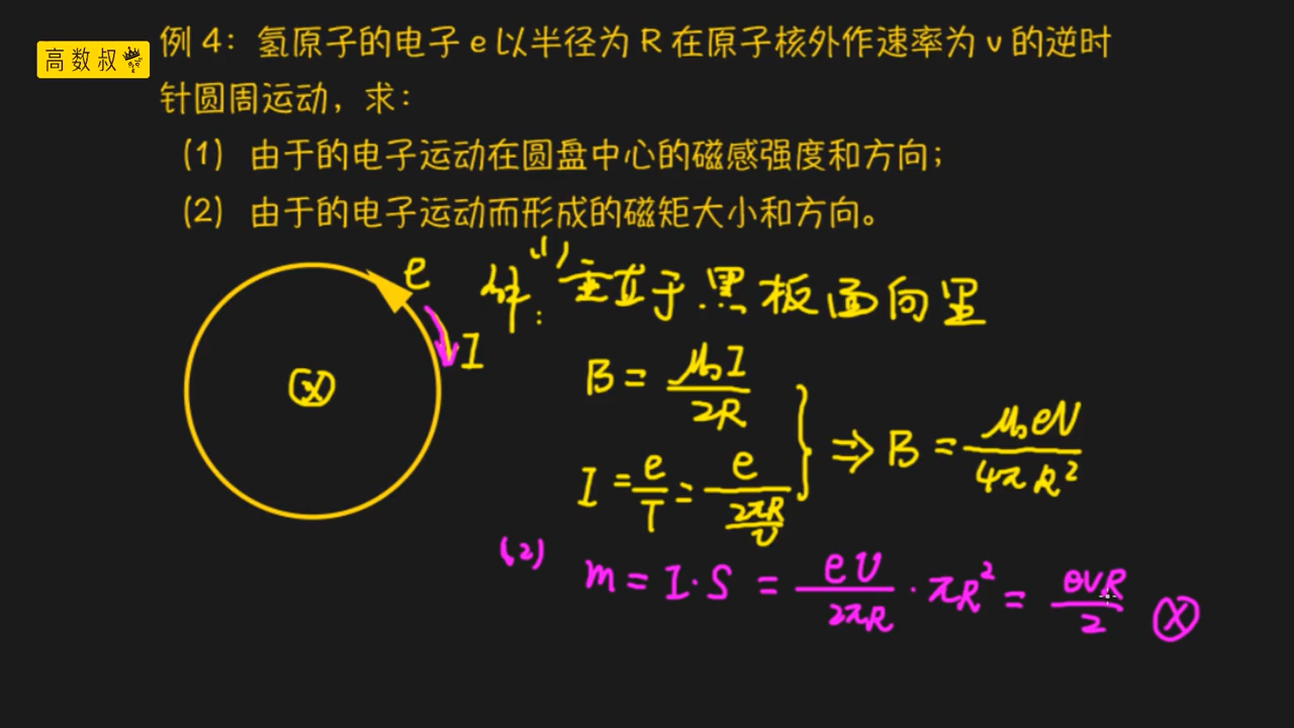 高数叔
例4：氢原子的电子e以半径为R在原子核外作速率为v的逆时
针圆周运动，求：
(1) 由于的电子运动在圆盘中心的磁感强度和方向；
(2) 由于的电子运动而形成的磁矩大小和方向。
e
I
解：(1) 垂直于黑板面向里
B = μ₀I / 2R
I = e/T = e / (2πR/v)
⇒ B = μ₀eV / 4πR²
(2) m = I·S = ev / 2πR · πR² = eVR / 2 ⊗